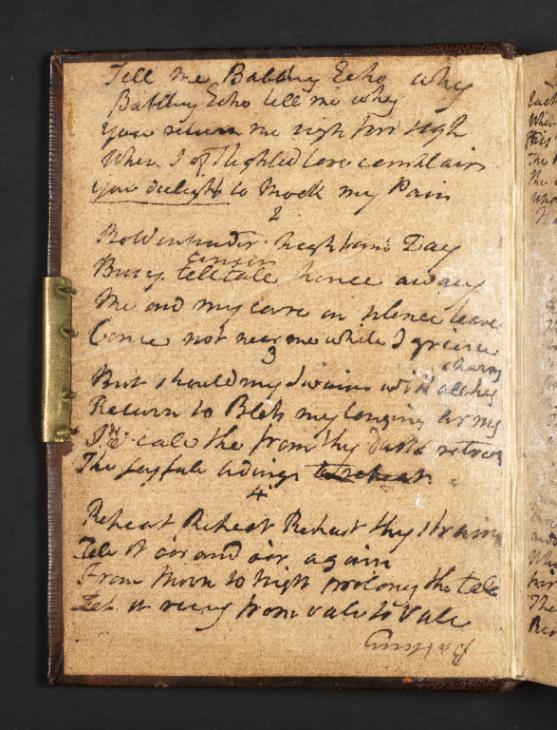 Tell me Babbling Echo why
Babbling Echo tell me why
you return me sigh for sigh
When I of slighted love complain
you delight to Mock my Pain
2
Bold intruder night and Day
Busy telltale hence away
censer
Me and my care in silence leave
Come not near me while I grieve
3
charms
But should my swain with all his
Return to Bless my longing arms
I'd call the from thy dark retreat
The joyfull tidings to repeat
4
Repeat Repeat Repeat thy strain
Tell it oer and oer again
From Morn to night prolong the tale
Let it ring from vale to Vale